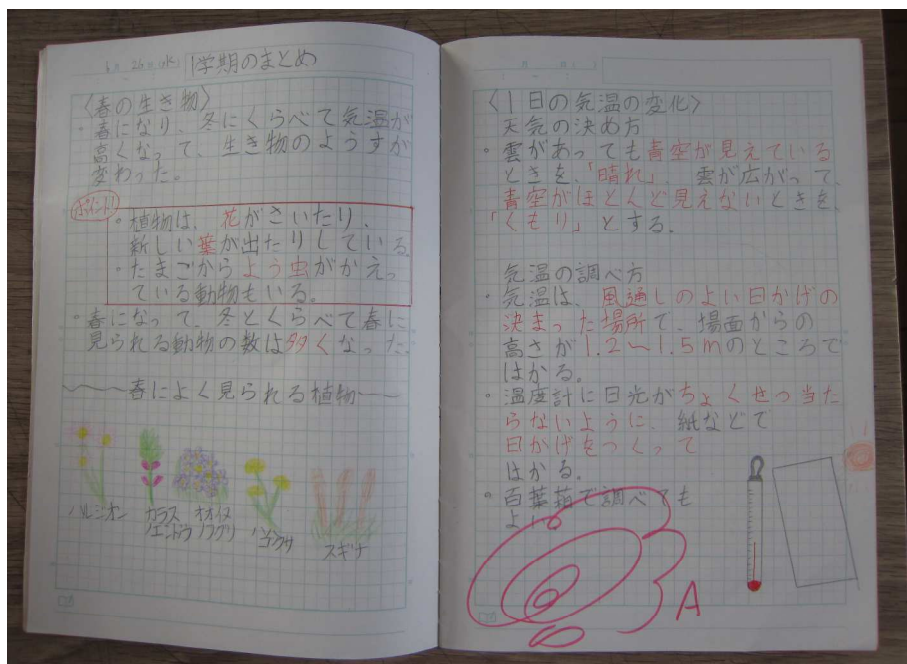 6月 26日(水) 1学期のまとめ
〈春の生き物〉
・春になり、冬にくらべて気温が
高くなって、生き物のようすが
変わった。
ポイント!
・植物は、花がさいたり、
新しい葉が出たりしている。
・たまごからよう虫がかえっ
ている動物もいる。
・春になって、冬とくらべて春に
見られる動物の数は多くなった。
〜〜春によく見られる植物〜〜
ハルジオン
カラス
ノエンドウ
オオイヌ
ノフグリ
スギナ
〈1日の気温の変化〉
天気の決め方
・雲があっても青空が見えている
ときを、「晴れ」、雲が広がって、
青空がほとんど見えないときを、
「くもり」とする。
気温の調べ方
・気温は、風通しのよい日かげの
決まった場所で、場面からの
高さが1.2〜1.5mのところで
はかる。
・温度計に日光がちょくせつ当た
らないように、紙などで
日かげをつくって
はかる。
・百葉箱で調べても
よい
A